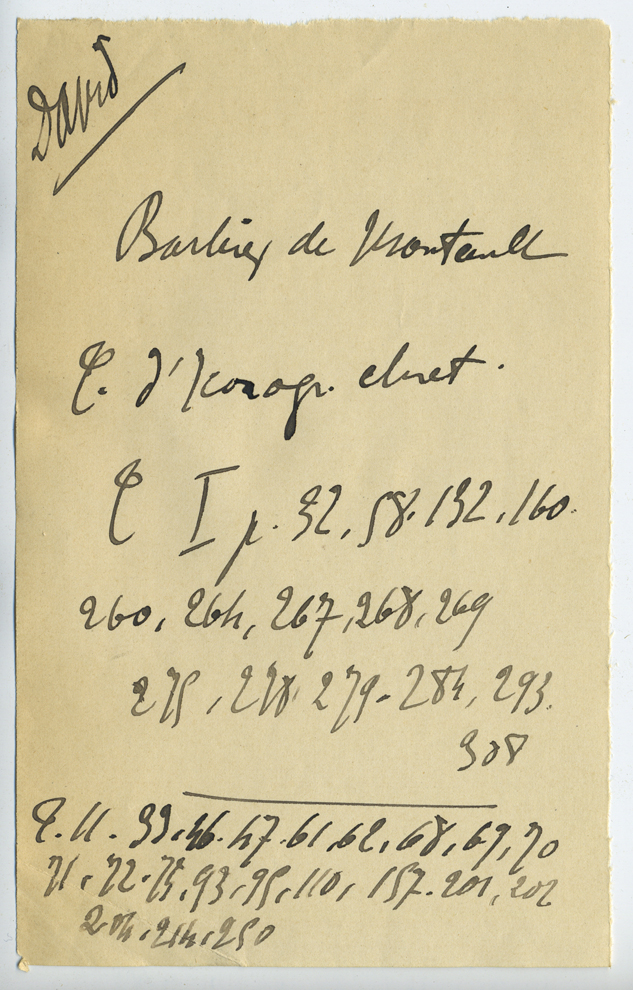 David
Barbier de Montault
T. d'Iconogr. chret.
T I p. 32, 58. 132, 160.
260, 264, 267, 268, 269
275, 278 279. 284, 293.
308
T. II. 33. 46. 47. 61, 62, 68, 69, 70
71. 72. 75, 93, 95, 110, 157. 201, 202
204, 214, 250